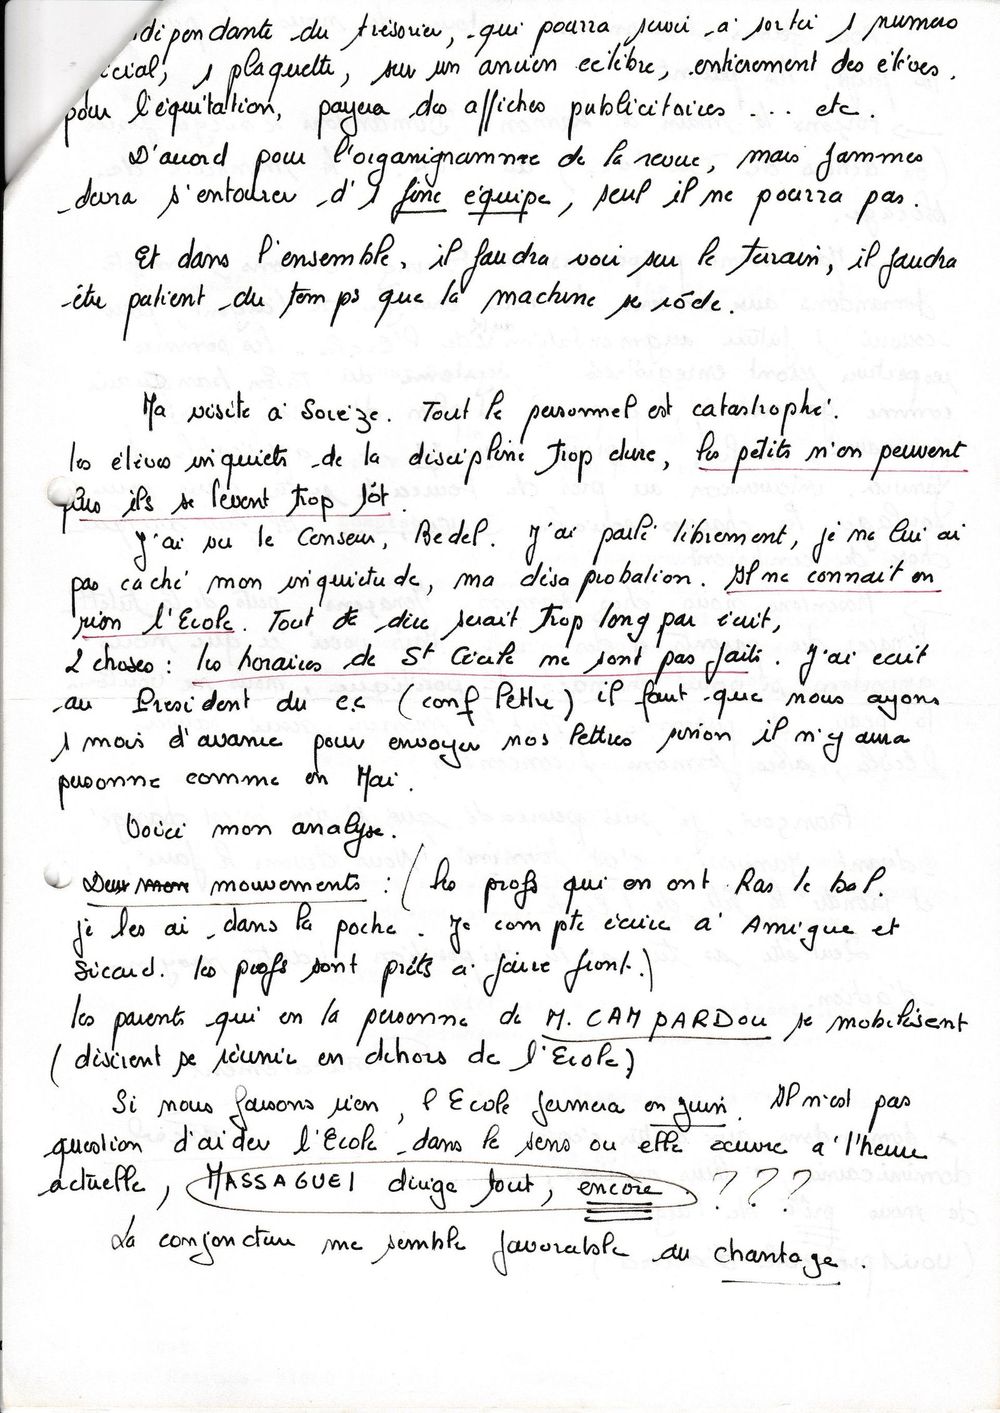 dépendante du trésorier, qui pourra servir à sortir 1 numero
écial, 1 plaquette, sur un ancien célibre, entierement des élèves.
pour l'équitation, payera des affiches publicitaires ... etc.
D'accord pour l'organigramme de la revue, mais Jammes
devra s'entourer d'1 fine équipe, seul il ne pourra pas.
Et dans l'ensemble, il faudra voir sur le terrain, il faudra
être patient du temps que la machine se rôde.
Ma visite à Sorèze. Tout le personnel est catastrophé.
les élèves inquiets de la discipline trop dure, les petits n'en peuvent
plus ils se lèvent trop tôt.
J'ai vu le Censeur, Bedel. J'ai parlé librement, je ne lui ai
pas caché mon inquietude, ma désaprobation. Il ne connait en
rien l'Ecole. Tout te dire serait trop long par écrit,
2 choses : les horaires de St Cécile ne sont pas faits. J'ai ecrit
au President du e.c (conf lettre) il faut que nous ayons
1 mois d'avance pour envoyer nos lettres sinon il n'y aura
personne comme en Mai.
Voici mon analyse.
Deux mouvements : ( les profs qui en ont Ras le bol.
je les ai dans la poche. Je compte écrire à Amigue et
Sicard. les profs sont prêts à faire front.)
les parents qui en la personne de M. CAMPARDOU se mobilisent
( désirent se réunir en dehors de l'Ecole)
Si nous faisons rien, l'Ecole fermera en juin. Il n'est pas
question d'aider l'Ecole dans le sens ou elle œuvre à l'heure
actuelle, MASSAGUEI dirige tout, encore ???
La conjoncture me semble favorable au chantage.